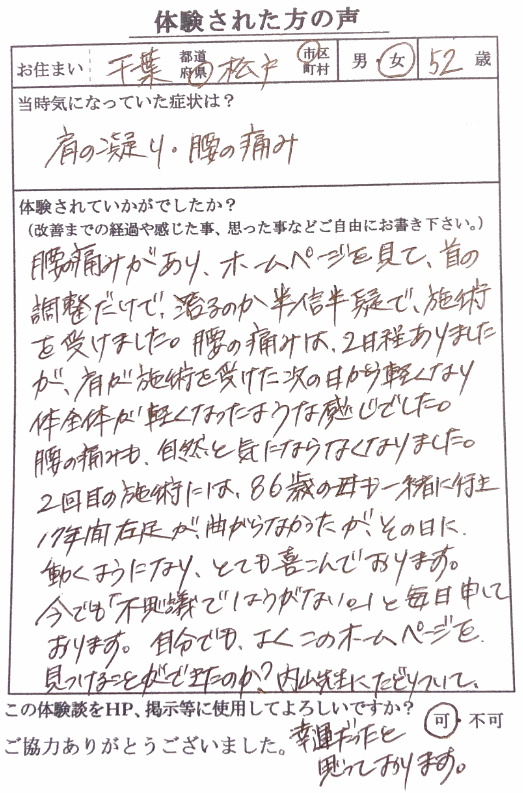 体験された方の声
お住まい 千葉 都道府県 松戸 市区町村 男・女 52 歳
当時気になっていた症状は？
肩の凝り・腰の痛み
体験されていかがでしたか？
（改善までの経過や感じた事、思った事などご自由にお書き下さい。）
腰の痛みがあり、ホームページを見て、首の
調整だけで、治るのか半信半疑で、施術
を受けました。腰の痛みは、2日程ありました
が、肩が施術を受けた次の日から軽くなり
体全体が軽くなったような感じでした。
腰の痛みも、自然と気にならなくなりました。
2回目の施術には、86歳の母も一緒に行き
17年間右足が、曲がらなかったが、その日に
動くようになり、とても喜こんでおります。
今でも「不思議でしょうがない。」と毎日申して
おります。自分でも、よくこのホームページを
見つけることができたのか？内山先生にたどりついて、
この体験談をHP、掲示等に使用してよろしいですか？ 可・不可
ご協力ありがとうございました。
幸運だったと
思っております。